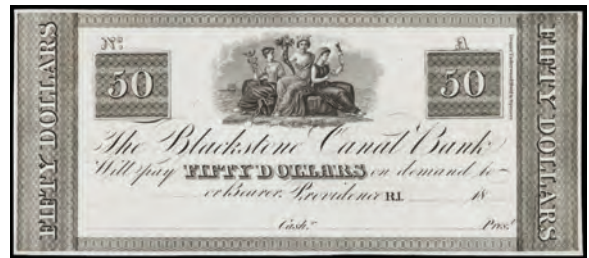 FIFTY DOLLARS
Nº
A
50
50
The Blackstone Canal Bank
Will pay FIFTY DOLLARS on demand to
or Bearer. Providence R.I. 18
Cash.r Pres.t
FIFTY DOLLARS